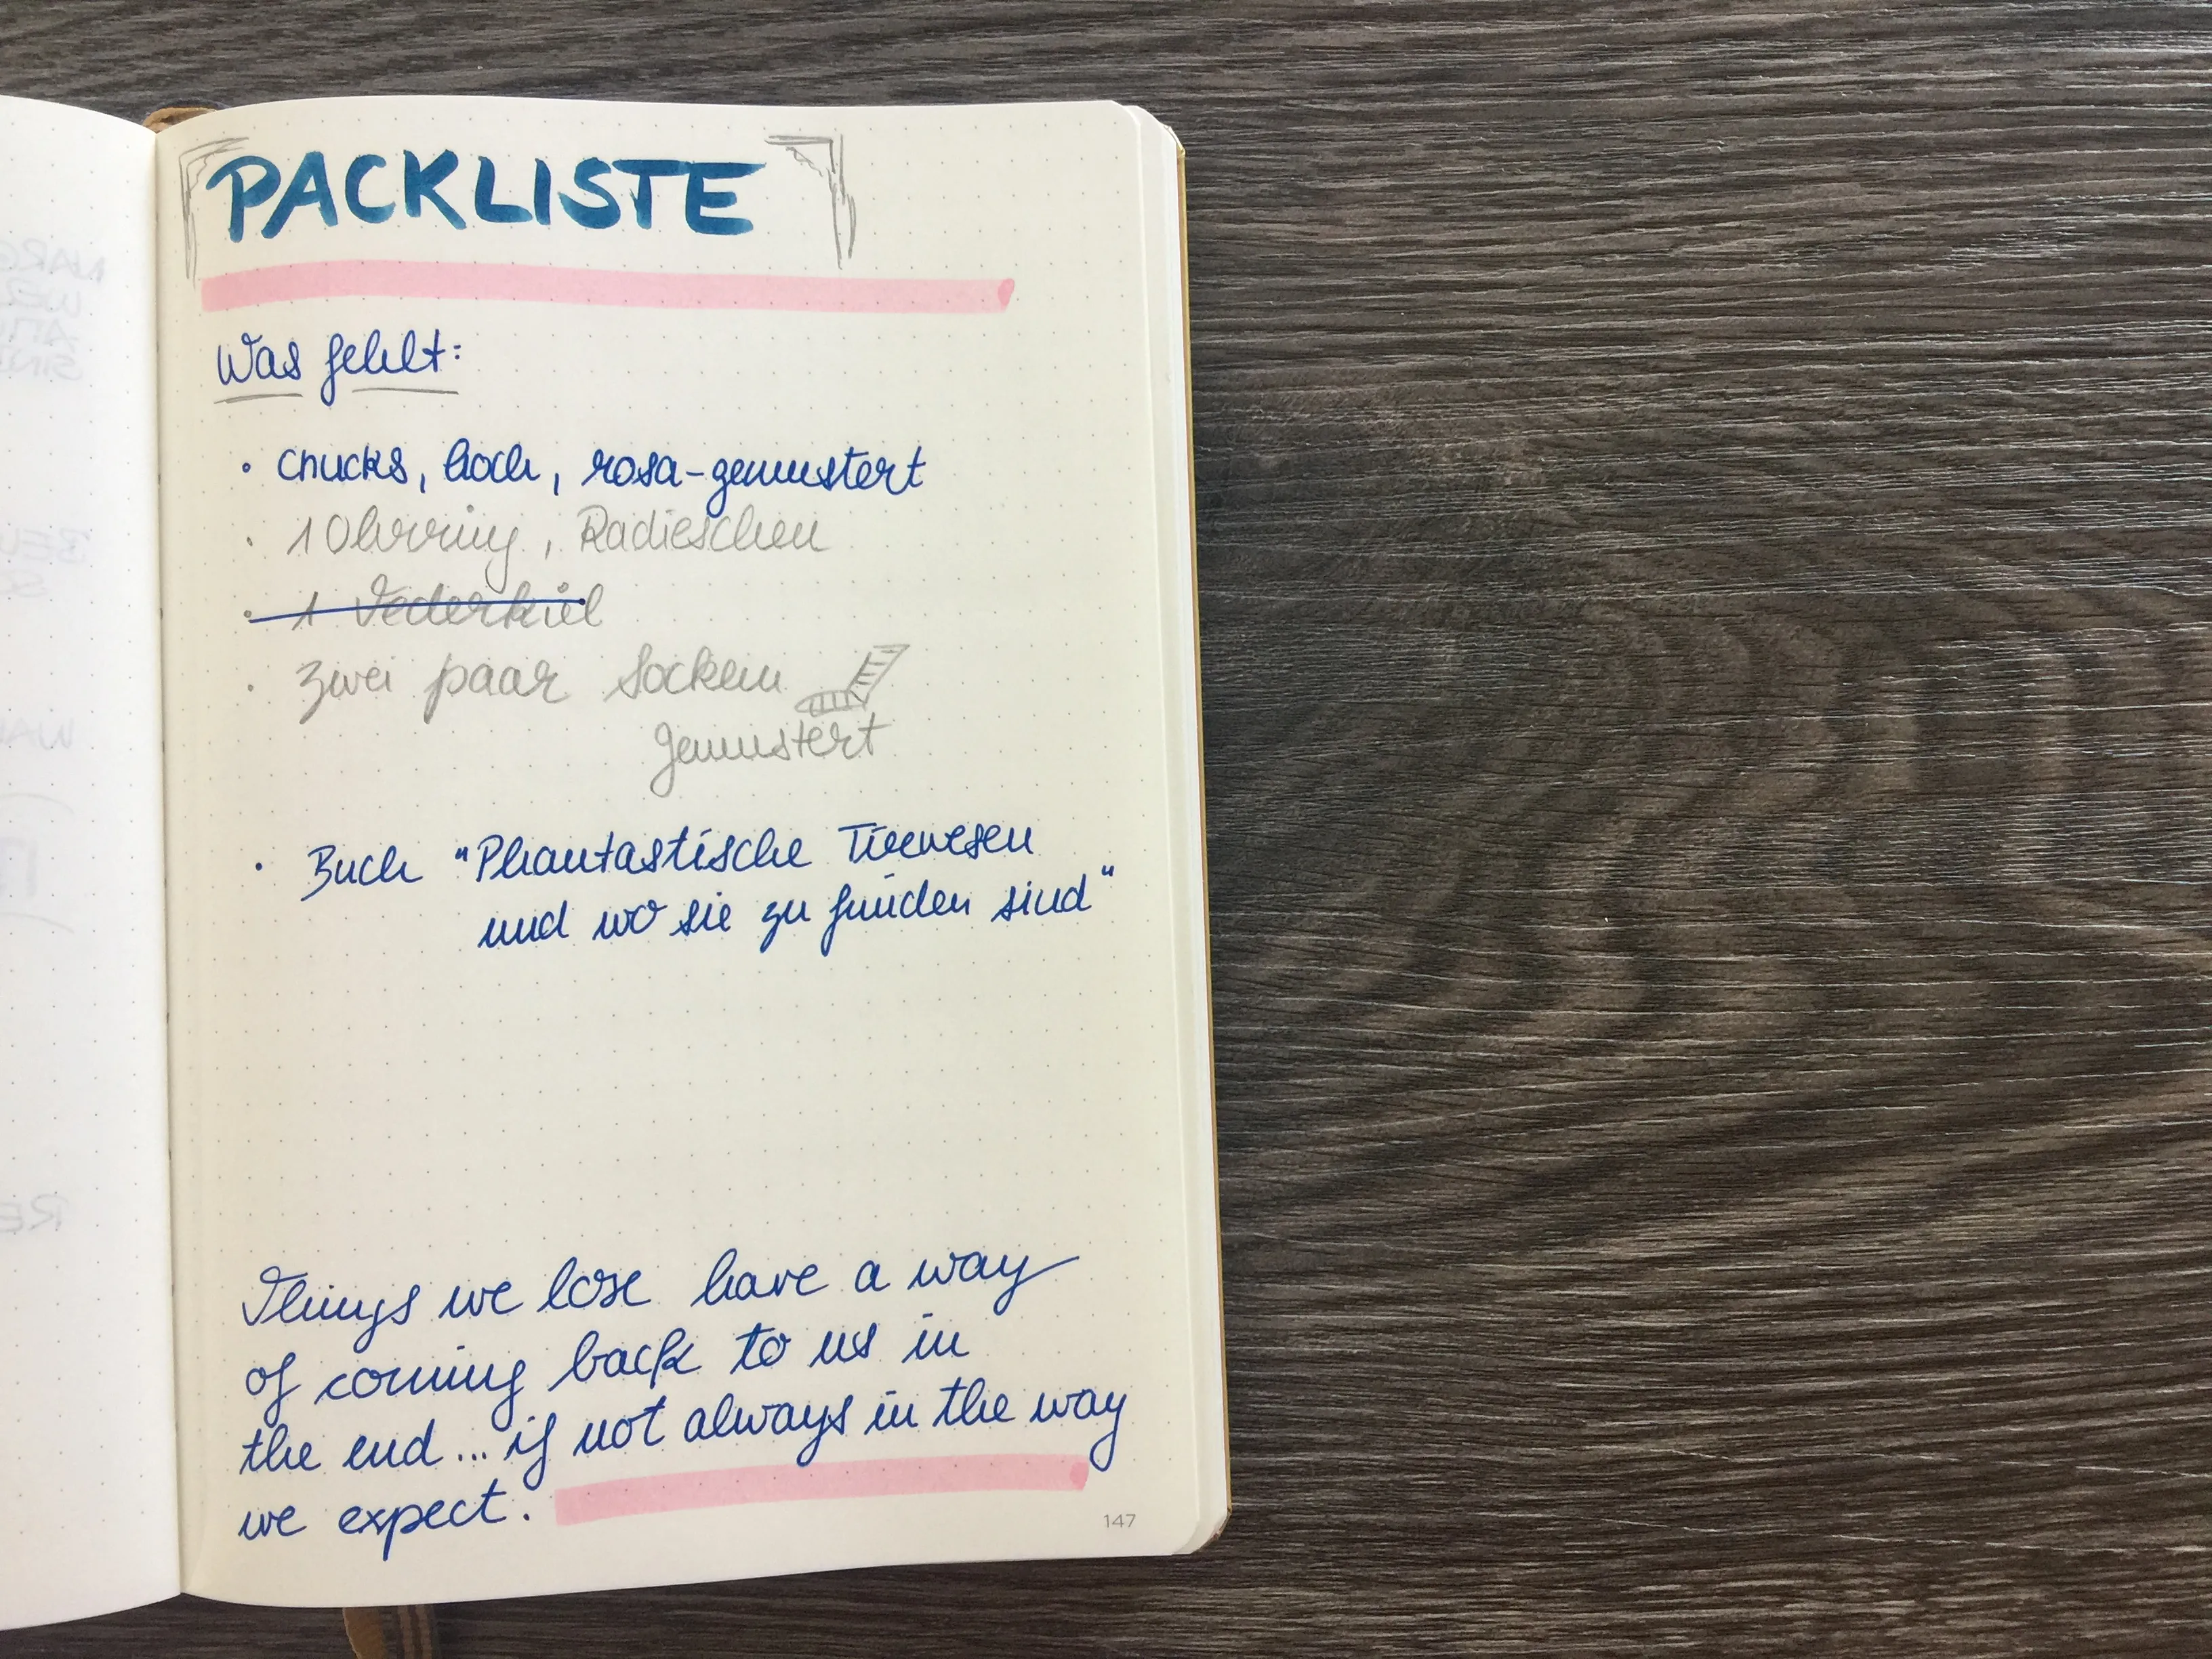 PACKLISTE
Was fehlt:
• Chucks, hoch, rosa-gemustert
• 1 Ohrring, Radieschen
• 1 Federkiel
• zwei paar Socken
gemustert
• Buch "Phantastische Tierwesen
und wo sie zu finden sind"
Things we lose have a way
of coming back to us in
the end... if not always in the way
we expect.
147